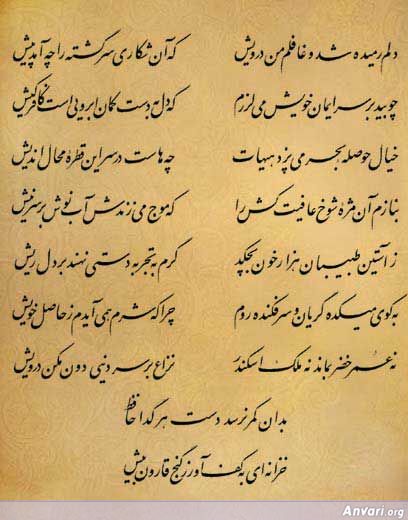 دلم رمیده شد و غافلم من درویش که آن شکاری سرگشته را چه آمد پیش
چو بید بر سر ایمان خویش می لرزم که دل به دست کمان ابرویی است کافر کیش
خیال حوصله بحر می پزد هیهات چه هاست در سر این قطره محال اندیش
بنازم آن مژه شوخ عافیت کش را که موج می زندش آب نوش بر سر نیش
ز آستین طبیبان هزار خون بچکد گرم به تجربه دستی نهند بر دل ریش
به کوی میکده گریان و سرفکنده روم چرا که شرم همی آیدم ز حاصل خویش
نه عمر خضر بماند نه ملک اسکندر نزاع بر سر دنیی دون مکن درویش
بدان کمر نرسد دست هر گدا حافظ
خزانه ای به کف آور ز گنج قارون بیش
Anvari.org